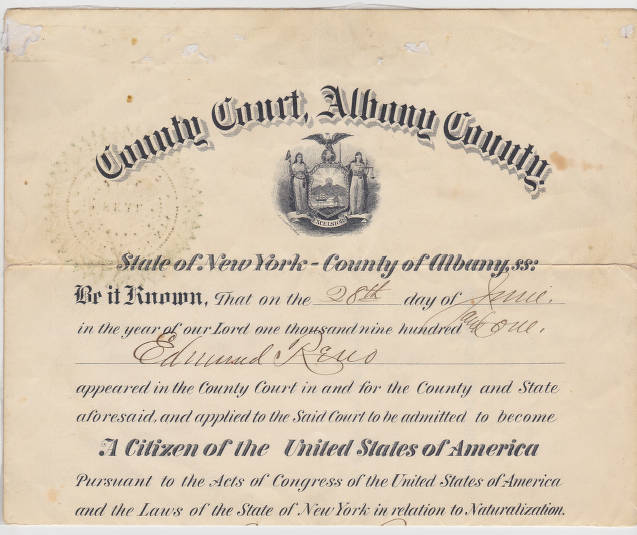 County Court, Albany County.
EXCELSIOR
State of New York - County of Albany, ss:
Be it Known, That on the 28th day of June.
in the year of our Lord one thousand nine hundred and one.
Edmund Reno
appeared in the County Court in and for the County and State
aforesaid, and applied to the Said Court to be admitted to become
A Citizen of the United States of America
Pursuant to the Acts of Congress of the United States of America
and the Laws of the State of New York in relation to Naturalization.